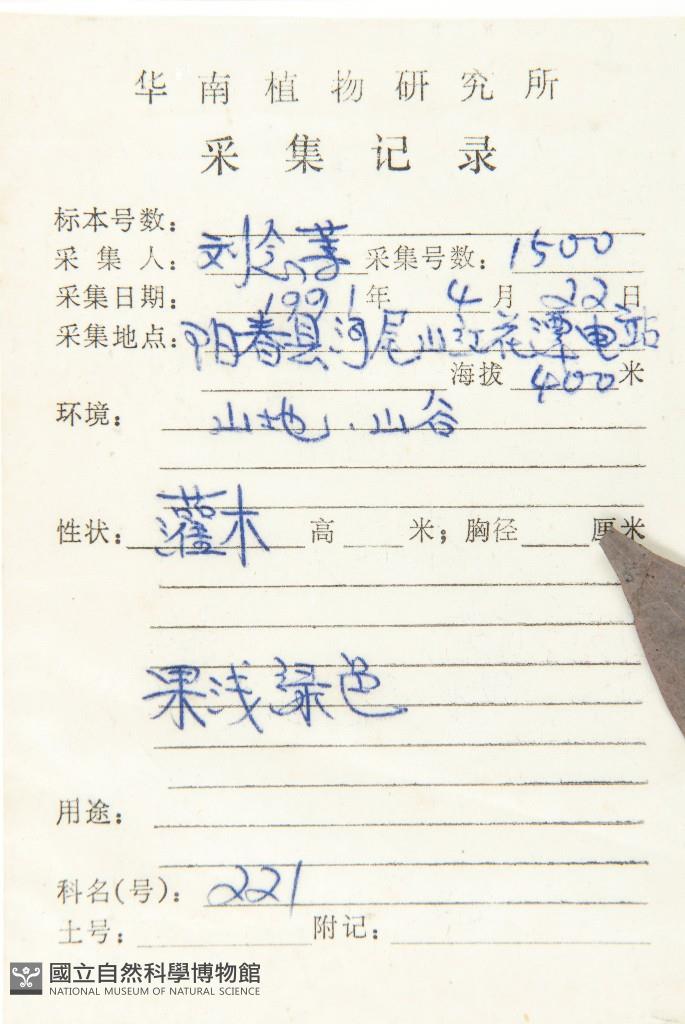 华南植物研究所
采集记录
标本号数：
采集人：刘念 采集号数：1500
采集日期：1991年4月22日
采集地点：阳春县河尾山红花潭电站
海拔400米
环境：山地、山谷
性状：灌木 高 米；胸径 厘米
果浅绿色
用途：
科名(号)：221
土号： 附记：
國立自然科學博物館
NATIONAL MUSEUM OF NATURAL SCIENCE